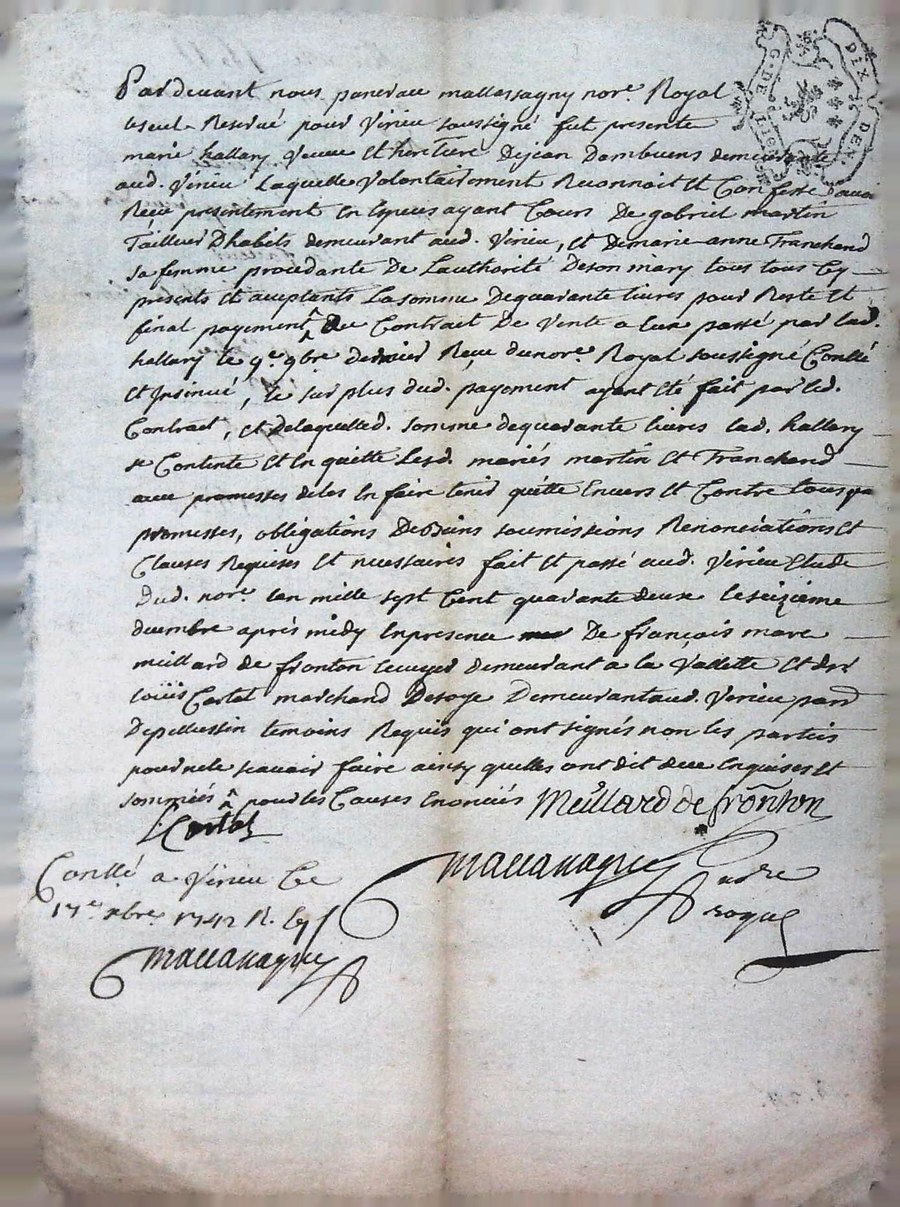 Par devant nous pancrace mallassagny nore. Royal
le seul Reservé pour virieu soussigné fut presente
marie hallary veuve et heritiere de jean Dambuens demeurante
aud. virieu Laquelle volontairement Reconnoit et Confesse d'avoir
Reçu presentement En Especes ayant Cours De gabriel martin
Tailleur D'habits demeurant aud. virieu, et De marie anne Franchand
sa femme procedante De Lauthorité De son mary tous tous Cy
presents et acceptants La somme De quarante livres pour Reste et
final payement du Contrait De vente a Eux passé par lad.
hallary le 9e. 9bre dernier Reçu du nore. Royal soussigné Conllé
et Insinué, le surplus dud. payement ayant Eté fait par led.
Contract, et De laquelled. somme de quarante livres lad. hallary
se Contente et En quitte Lesd. mariés martin et Franchand
avec promesses de les En faire tenir quitte Envers et Contre tous
promesses, obligations De Biens soumissions Renonciations et
Clauses Requises et necessaires fait et passé aud. virieu Etude
Dud. nore. L'an mille sept Cent quarante deux le seizieme
decembre après midy En presence De françois marc
meillard de fronton Ecuyer demeurant a la vallette et de
loüis Cartal marchand De soye Demeurant aud. virieu
De pellussin temoins Requis qui ont signés non les parties
pour ne le scavoir faire ainsy quelles ont dit de ce Enquises et
sommeés pour les Causes Enoncées Meillard de frônton
L Cartal
mallassagny
Conllé a virieu Ce
17e. xbre. 1742 R.
mallassagny